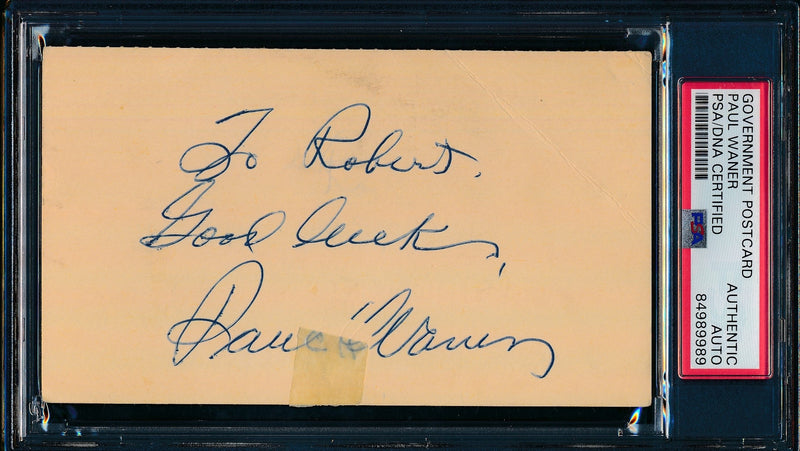 To Robert.
Good luck,
Paul Waner
GOVERNMENT POSTCARD
PAUL WANER
PSA/DNA CERTIFIED
PSA
AUTHENTIC
AUTO
84989989